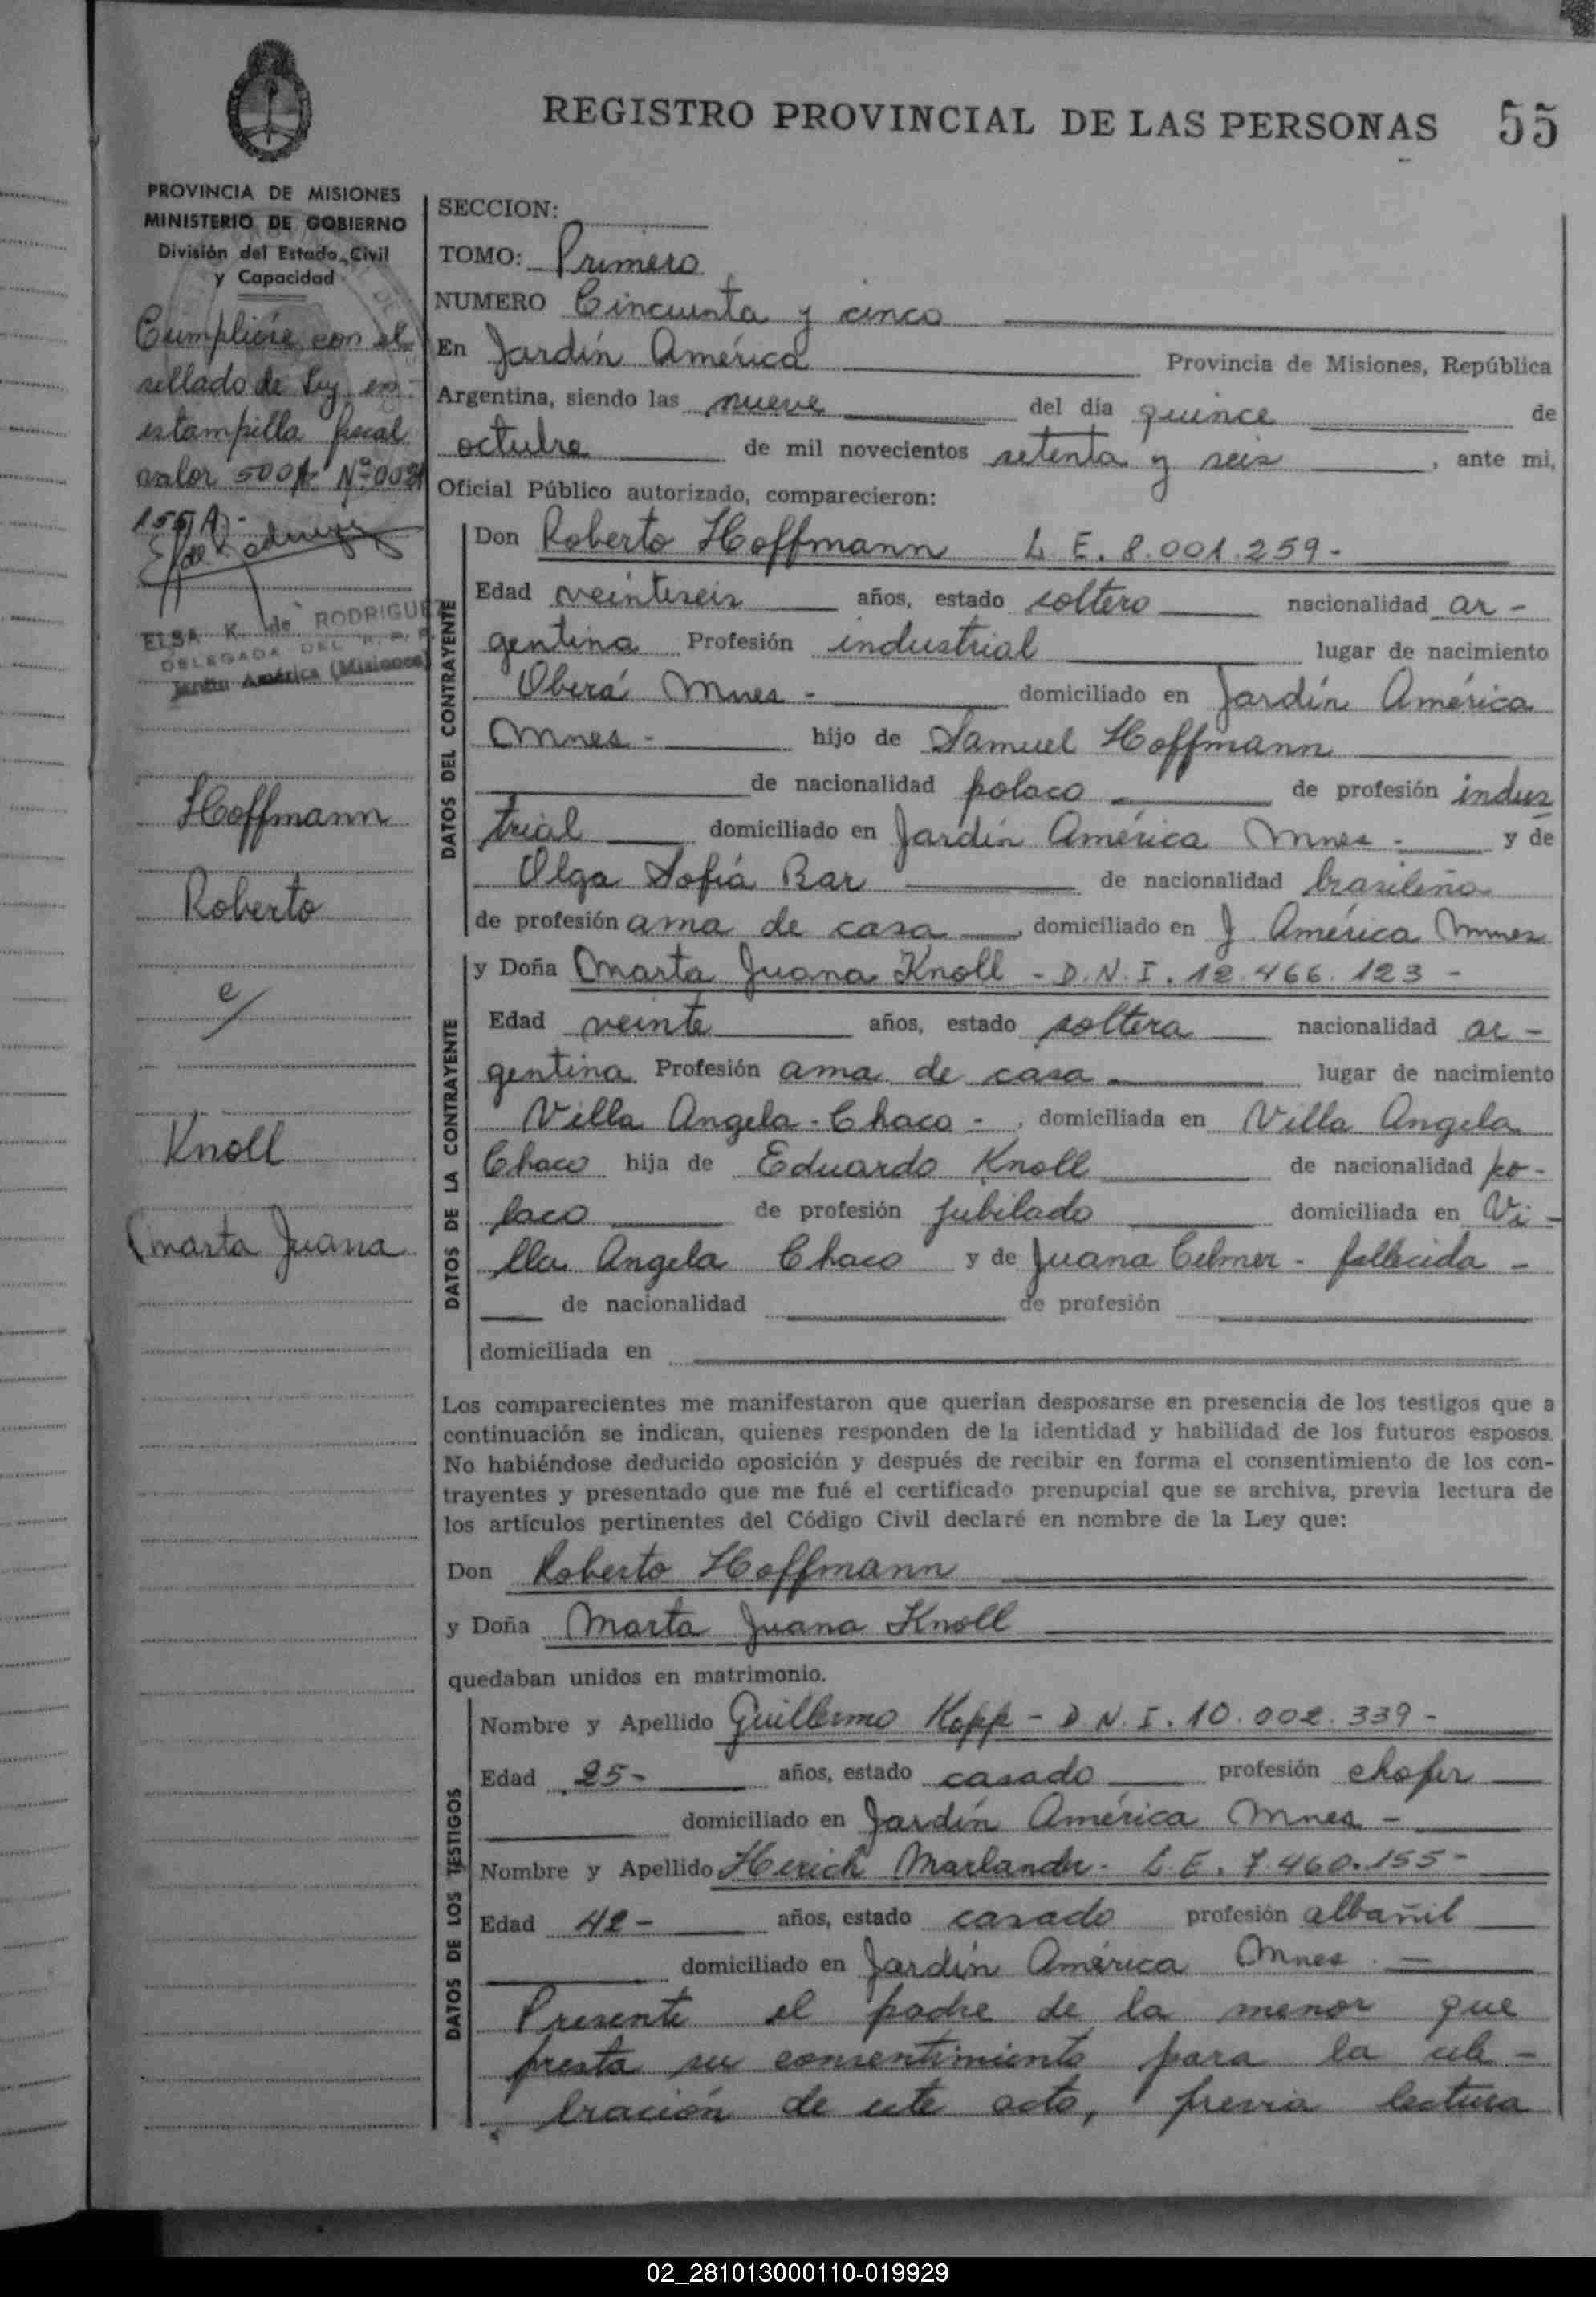 REGISTRO PROVINCIAL DE LAS PERSONAS 55
PROVINCIA DE MISIONES
MINISTERIO DE GOBIERNO
División del Estado Civil
y Capacidad
Cumpliose con el
sellado de Ley en
estampilla fiscal
valor 500 Nº 003
155 A) -
ELSA K. de RODRIGUEZ
DELEGADA DEL R. P. P.
Jardín América (Misiones)
Hoffmann
Roberto
c/
Knoll
Marta Juana
SECCION:
TOMO: Primero
NUMERO Cincuenta y cinco
En Jardín América Provincia de Misiones, República
Argentina, siendo las nueve del día quince de
octubre de mil novecientos setenta y seis , ante mi,
Oficial Público autorizado, comparecieron:
DATOS DEL CONTRAYENTE
Don Roberto Hoffmann L. E. 8.001.259-
Edad veintiseis años, estado soltero nacionalidad ar-
gentina Profesión industrial lugar de nacimiento
Oberá Mnes - domiciliado en Jardín América
Mnes - hijo de Samuel Hoffmann
de nacionalidad polaco de profesión indus
trial domiciliado en Jardín América Mnes - y de
Olga Sofiá Bar de nacionalidad brasileña
de profesión ama de casa , domiciliado en J América Mnes
DATOS DE LA CONTRAYENTE
y Doña Marta Juana Knoll - D.N.I. 12.466.123 -
Edad veinte años, estado soltera nacionalidad ar-
gentina Profesión ama de casa lugar de nacimiento
Villa Angela - Chaco - , domiciliada en Villa Angela
Chaco hija de Eduardo Knoll de nacionalidad po-
laco de profesión jubilado domiciliada en Vi-
lla Angela Chaco y de Juana Celmer - fallecida -
de nacionalidad de profesión
domiciliada en
Los comparecientes me manifestaron que querían desposarse en presencia de los testigos que a
continuación se indican, quienes responden de la identidad y habilidad de los futuros esposos.
No habiéndose deducido oposición y después de recibir en forma el consentimiento de los con-
trayentes y presentado que me fué el certificado prenupcial que se archiva, previa lectura de
los artículos pertinentes del Código Civil declaré en nombre de la Ley que:
Don Roberto Hoffmann
y Doña Marta Juana Knoll
quedaban unidos en matrimonio.
DATOS DE LOS TESTIGOS
Nombre y Apellido Guillermo Kopp - D.N.I. 10.002.339 -
Edad 25- años, estado casado profesión chofer
domiciliado en Jardín América Mnes -
Nombre y Apellido Herich Marlander - L.E. 7.460.155-
Edad 42- años, estado casado profesión albañil
domiciliado en Jardín América Mnes. -
Presente el padre de la menor que
presta su consentimiento para la cele-
bración de este acto, previa lectura
02_281013000110-019929